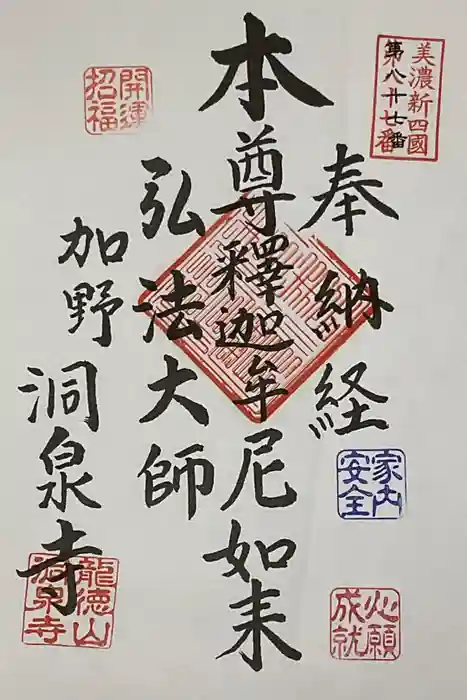 美濃新四國
第八十七番
奉納経
家内
安全
心願
成就
本尊釋迦牟尼如来
弘法大師
開運
招福
加野
洞泉寺
龍徳山
洞泉寺